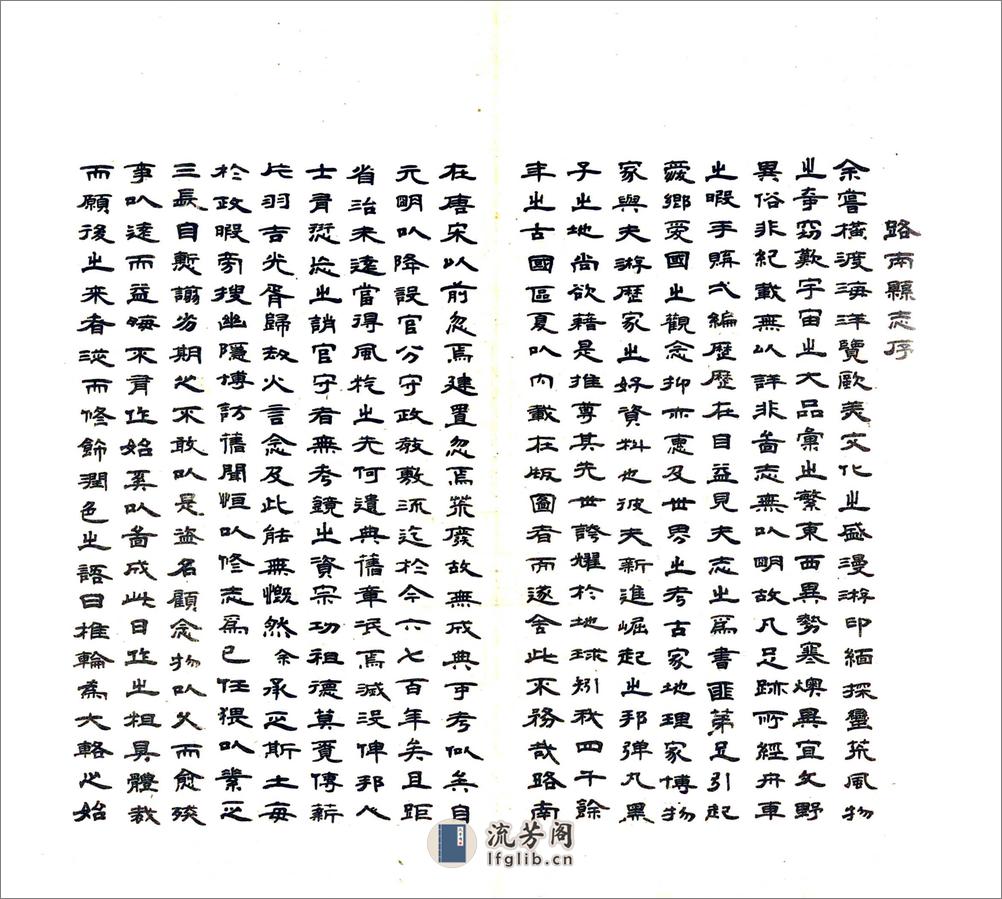 路南縣志序
余嘗橫渡海洋覽歐美文化之盛漫游印緬探蠻荒風物
之奇竊歎宇宙之大品彙之繁東西異勢寒燠異宜文野
異俗非紀載無以詳非啚志無以明故凡足跡所經舟車
之暇手購弌編歷歷在目益見夫志之爲書匪第足引起
愛鄉愛國之觀念抑亦惠及世界之考古家地理家博物
家與夫游歷家之好資料也彼夫新進崛起之邦彈丸黑
子之地尚欲藉是推尊其先世誇耀於地球矧我四千餘
年之古國區夏以內載在版圖者而遂舍此不務哉路南
在唐宋以前忽焉建置忽焉荒廢故無成典可考似矣自
元明以降設官分守政敎敷流迄於今六七百年矣且距
省治未遠當得風化之先何遺典舊章泯焉滅沒俾邦人
士胥愆忘之誚官守者無考鏡之資宗功祖德莫賡傳薪
片羽吉光胥歸劫火言念及此能無慨然余承乏斯土每
於政暇旁搜幽隱博訪舊聞恒以修志爲已任猥以業乏
三長自慙謭劣期之不敢以是盜名顧念物以久而愈殘
事以遠而益晦不胥作始奚以啚成此日作之粗具體裁
而願後之來者從而修飾潤色之語曰椎輪為大輅之始